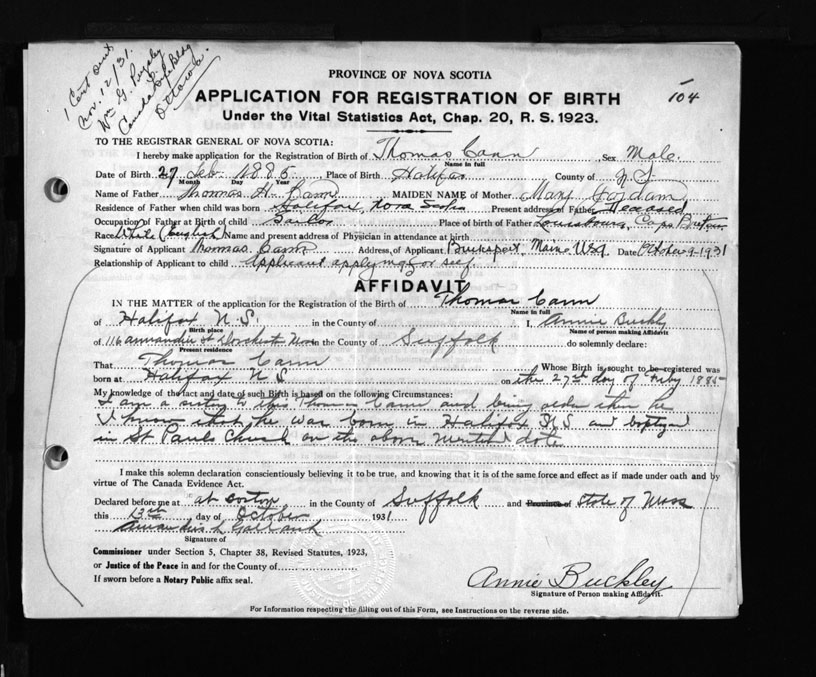 1 Cert sent
Nov. 12/31.
Wm G. Pugsley
Canada Life Bldg
Ottawa.
104
PROVINCE OF NOVA SCOTIA
APPLICATION FOR REGISTRATION OF BIRTH
Under the Vital Statistics Act, Chap. 20, R. S. 1923.
TO THE REGISTRAR GENERAL OF NOVA SCOTIA:
I hereby make application for the Registration of Birth of Thomas Cann Sex Male.
Name in full
Date of Birth 27 Feb. 1885 Place of Birth Halifax County of N S
Month Day Year
Name of Father Thomas H. Cann MAIDEN NAME of Mother Mary
Residence of Father when child was born Halifax, Nova Scotia Present address of Father Deceased
Occupation of Father at Birth of child Sailor Place of birth of Father Louisbourg, Cape Breton
Race White (English) Name and present address of Physician in attendance at birth
Signature of Applicant Thomas Cann Address of Applicant Bucksport, Maine USA Date October 9-1931
Relationship of Applicant to child Applicant applying for self.
AFFIDAVIT
IN THE MATTER of the application for the Registration of the Birth of Thomas Cann
Name in full
of Halifax N.S. in the County of I, Annie Buckley
Birth place Name of person making Affidavit
of 116 St Dorchester Mass in the County of Suffolk do solemnly declare:
Present residence
That Thomas Cann Whose Birth is sought to be registered was
born at Halifax N S on the 27th day of Feby 1885
My knowledge of the fact and date of such Birth is based on the following Circumstances:
I am a sister to this Thomas Cann and being older then he
I know that he was born in Halifax N S and baptized
in St Pauls Church on the above date
I make this solemn declaration conscientiously believing it to be true, and knowing that it is of the same force and effect as if made under oath and by
virtue of The Canada Evidence Act.
Declared before me at at Boston in the County of Suffolk and Province of State of Mass
this 13th day of October 1931
Signature of
Commissioner under Section 5, Chapter 38, Revised Statutes, 1923,
or Justice of the Peace in and for the County of
If sworn before a Notary Public affix seal.
Annie Buckley
Signature of Person making Affidavit.
For Information respecting the filling out of this Form, see Instructions on the reverse side.